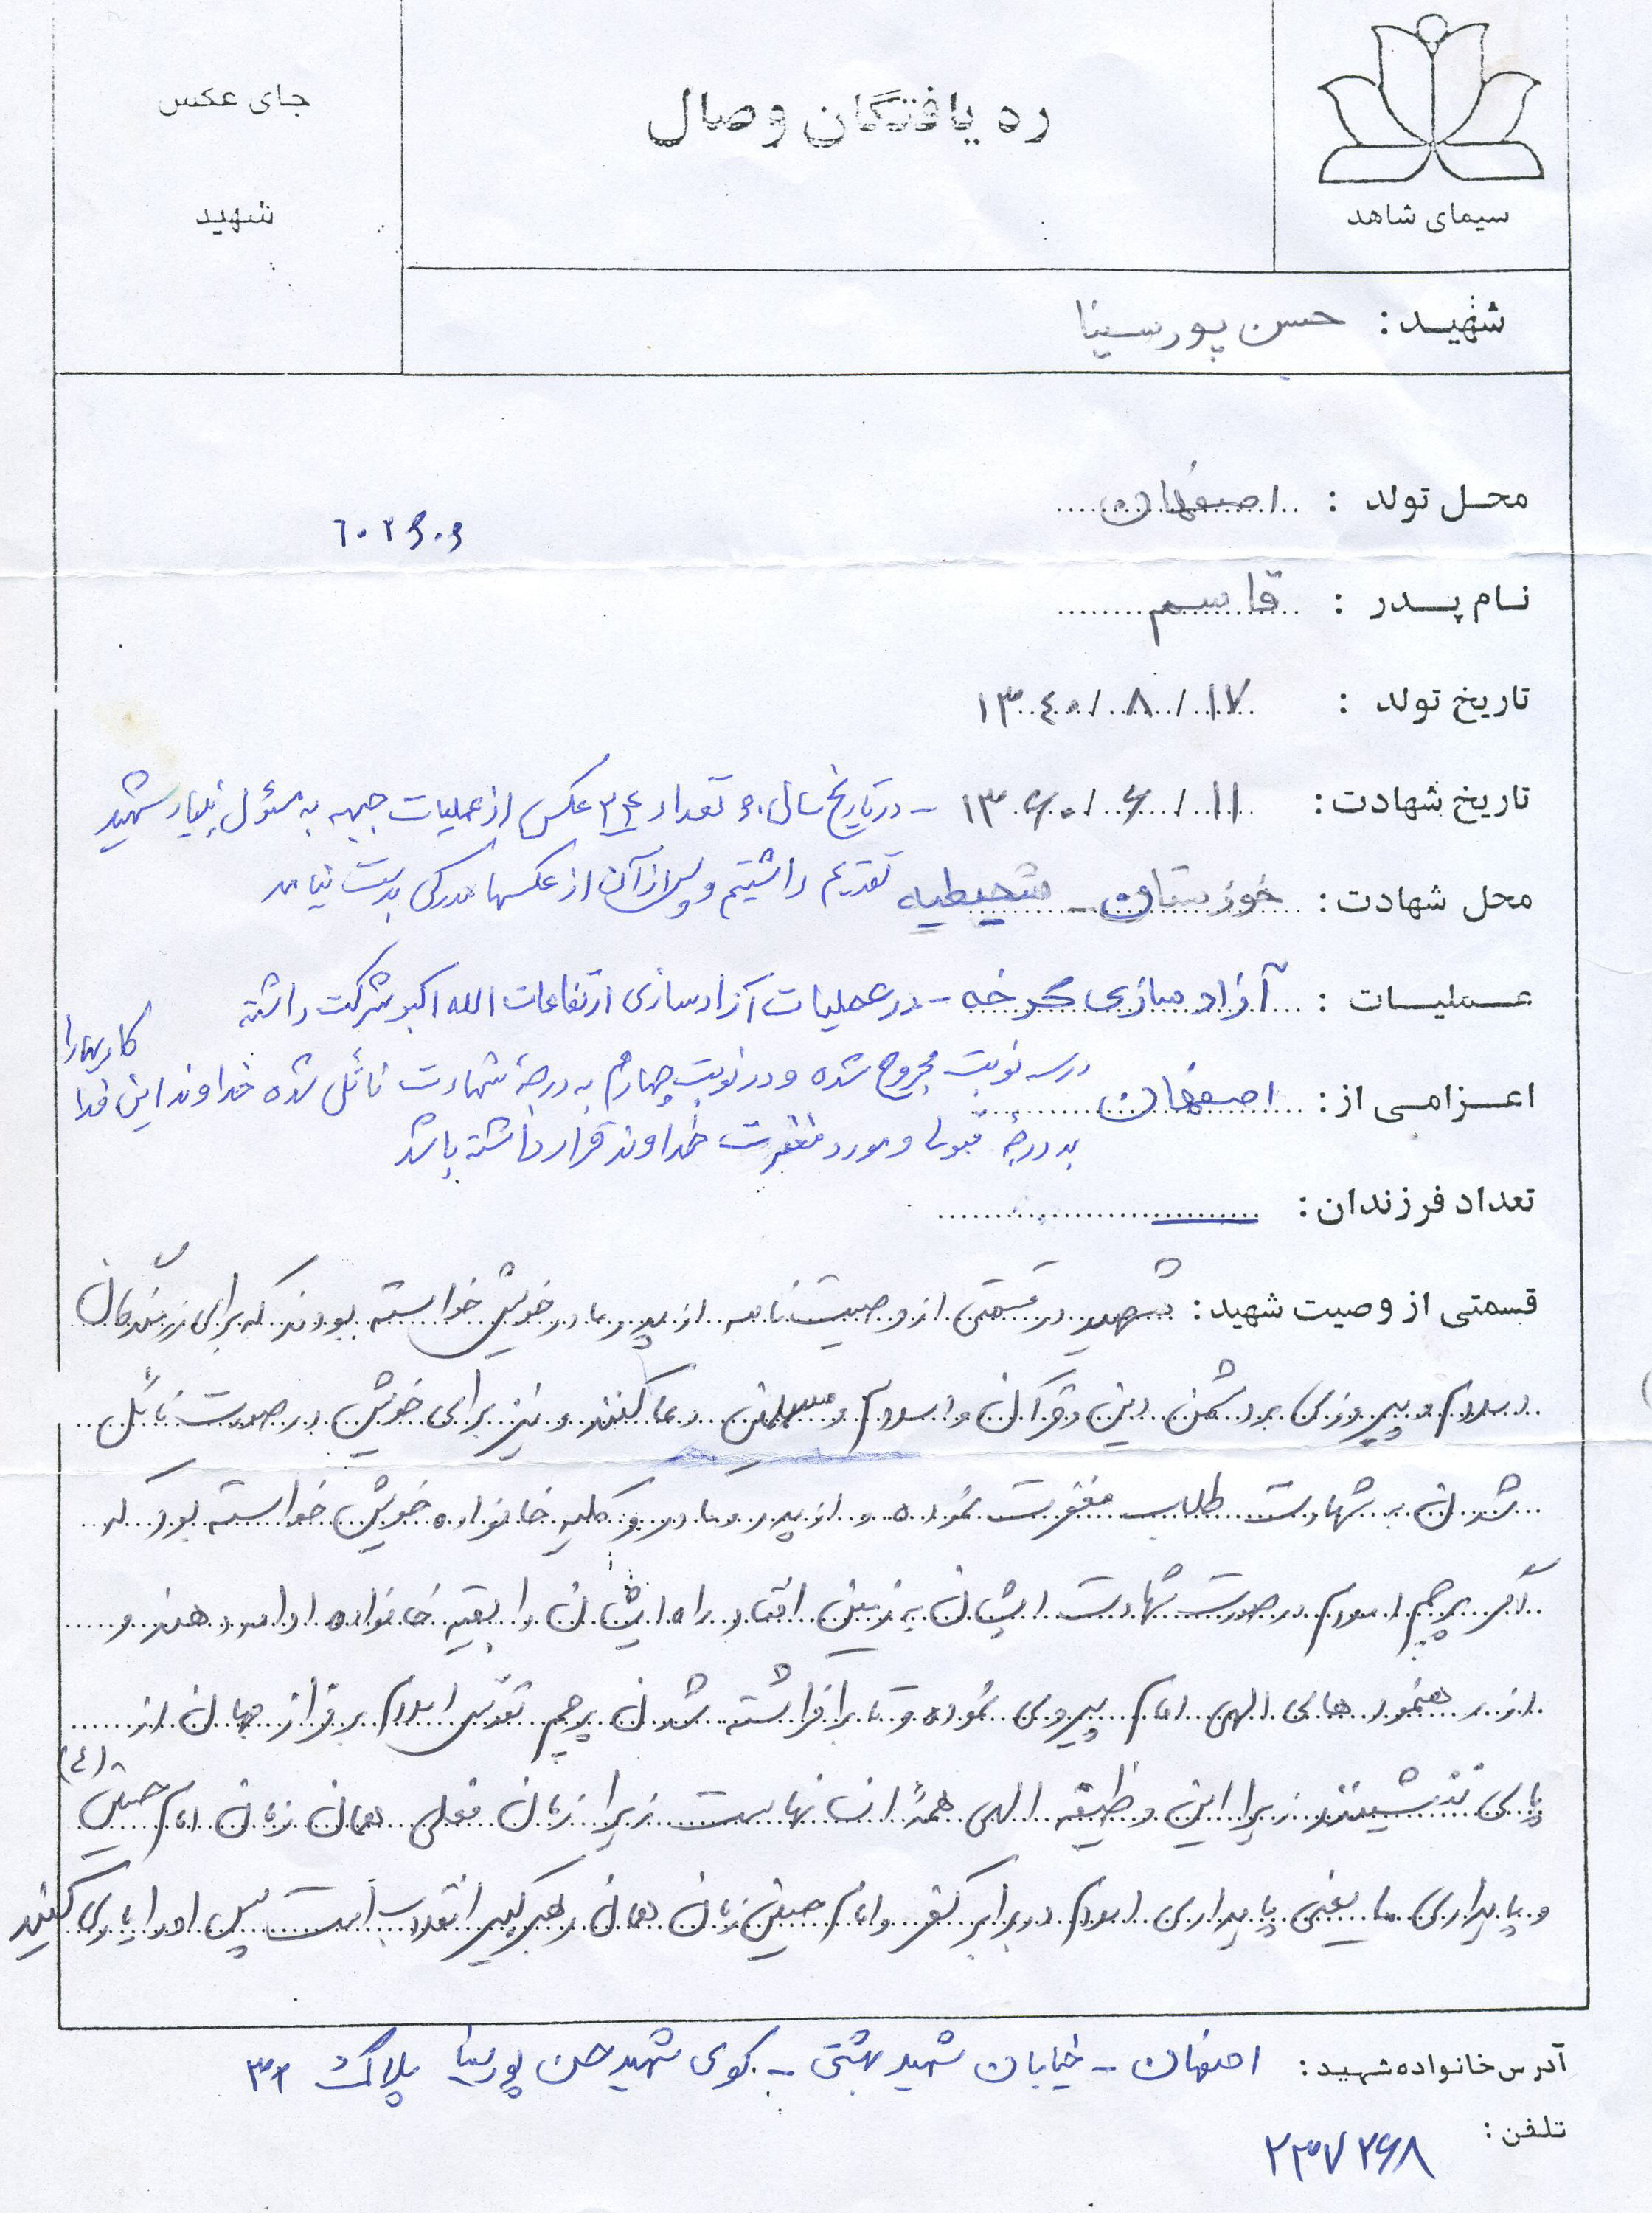 سیمای شاهد
ره یافتگان وصال
جای عکس
شهید
شهید: حسن پورسینا
محل تولد : اصفهان
۶۰۲۶۰۶
نام پدر : قاسم
تاریخ تولد : ۱۷ / ۸ / ۱۳۴۰
تاریخ شهادت: ۱۱ / ۶ / ۱۳۶۰ - در تاریخ سال ۶۰ تعداد ۳۴ عکس از عملیات جبهه به مسئول بنیاد شهید
محل شهادت: خوزستان - شحیطیه تقدیم داشتیم و پس از آن از عکسها مدرکی بدست نیامد
عملیات : آزادسازی کرخه - در عملیات آزادسازی ارتفاعات الله اکبر شرکت داشته
اعزامی از: اصفهان در سه نوبت مجروح شده و در نوبت چهارم به درجهٔ شهادت نائل شده خداوند این فدا
کاریها را
به درجهٔ قبول و مورد مغفرت خداوند قرار داشته باشد
تعداد فرزندان:
قسمتی از وصیت شهید: شهید در قسمتی از وصیت نامه از پدر و مادر خویش خواسته بودند که برای رزمندگان
اسلام و پیروزی بر دشمن دین و قرآن و اسلام و مسلمین دعا کنند و نیز برای خویش در صورت نائل
شدن به شهادت طلب مغفرت نموده و از پدر و مادر و کلیه خانواده خویش خواسته بود که
اگر پرچم اسلام در صورت شهادت ایشان به زمین افتاد راه ایشان را بقیه خانواده ادامه دهند و
از رهنمودهای الهی امام پیروی نموده و تا برافراشته شدن پرچم تقدس اسلام بر فراز جهان از
پای ننشینند زیرا این وظیفه الهی همهٔ انسانهاست زیرا زمان فعلی همان زمان امام حسین (ع)
و پایداری ما یعنی پایداری اسلام در برابر کفر و امام حسین زمان همان رهبر کبیر انقلاب است پس او را یاری کنید
آدرس خانواده شهید: اصفهان - خیابان شهید بهشتی - کوی شهید حسن پورسینا پلاک ۳۱
تلفن : ۲۳۷۲۶۸